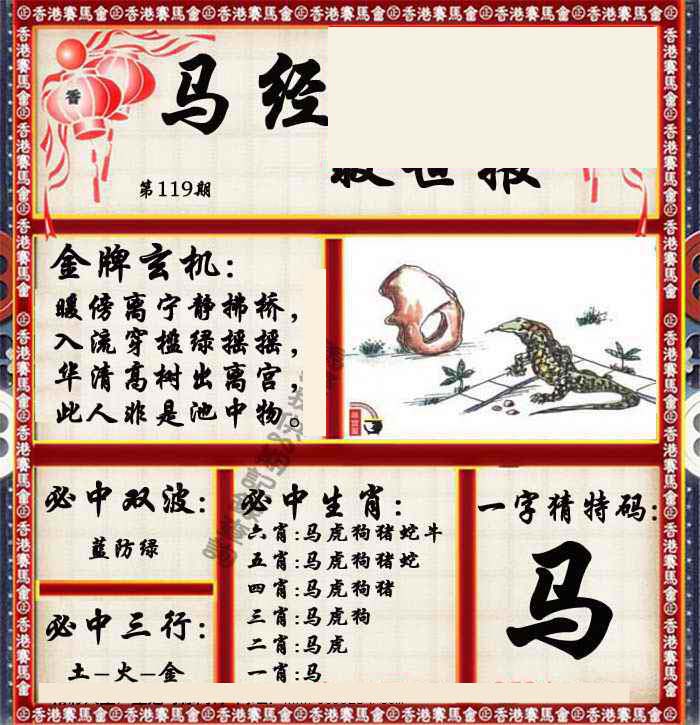 马经
救世报
第119期
金牌玄机:
暖傍离宁静拂桥，
入流穿槛绿摇摇，
华清高树出离宫，
此人非是池中物。
必中双波:
蓝防绿
必中三行:
土-火-金
必中生肖:
六肖:马虎狗猪蛇牛
五肖:马虎狗猪蛇
四肖:马虎狗猪
三肖:马虎狗
二肖:马虎
一肖:马
一字猜特码:
马
香港赛馬會